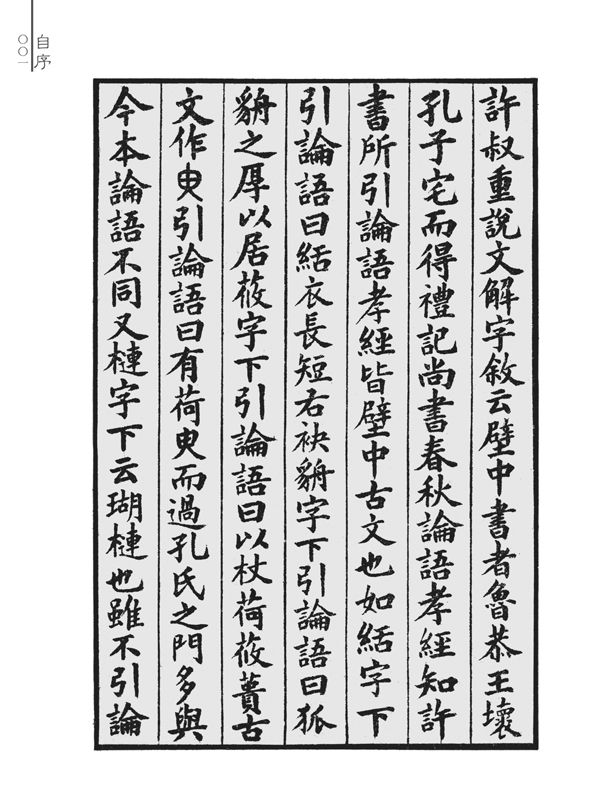 自序
〇〇一
許叔重說文解字敘云壁中書者魯恭王壞
孔子宅而得禮記尚書春秋論語孝經知許
書所引論語孝經皆壁中古文也如絬字下
引論語曰絬衣長短右袂貈字下引論語曰狐
貈之厚以居莜字下引論語曰以杖荷莜蕢古
文作臾引論語曰有荷臾而過孔氏之門多與
今本論語不同又槤字下云瑚槤也雖不引論